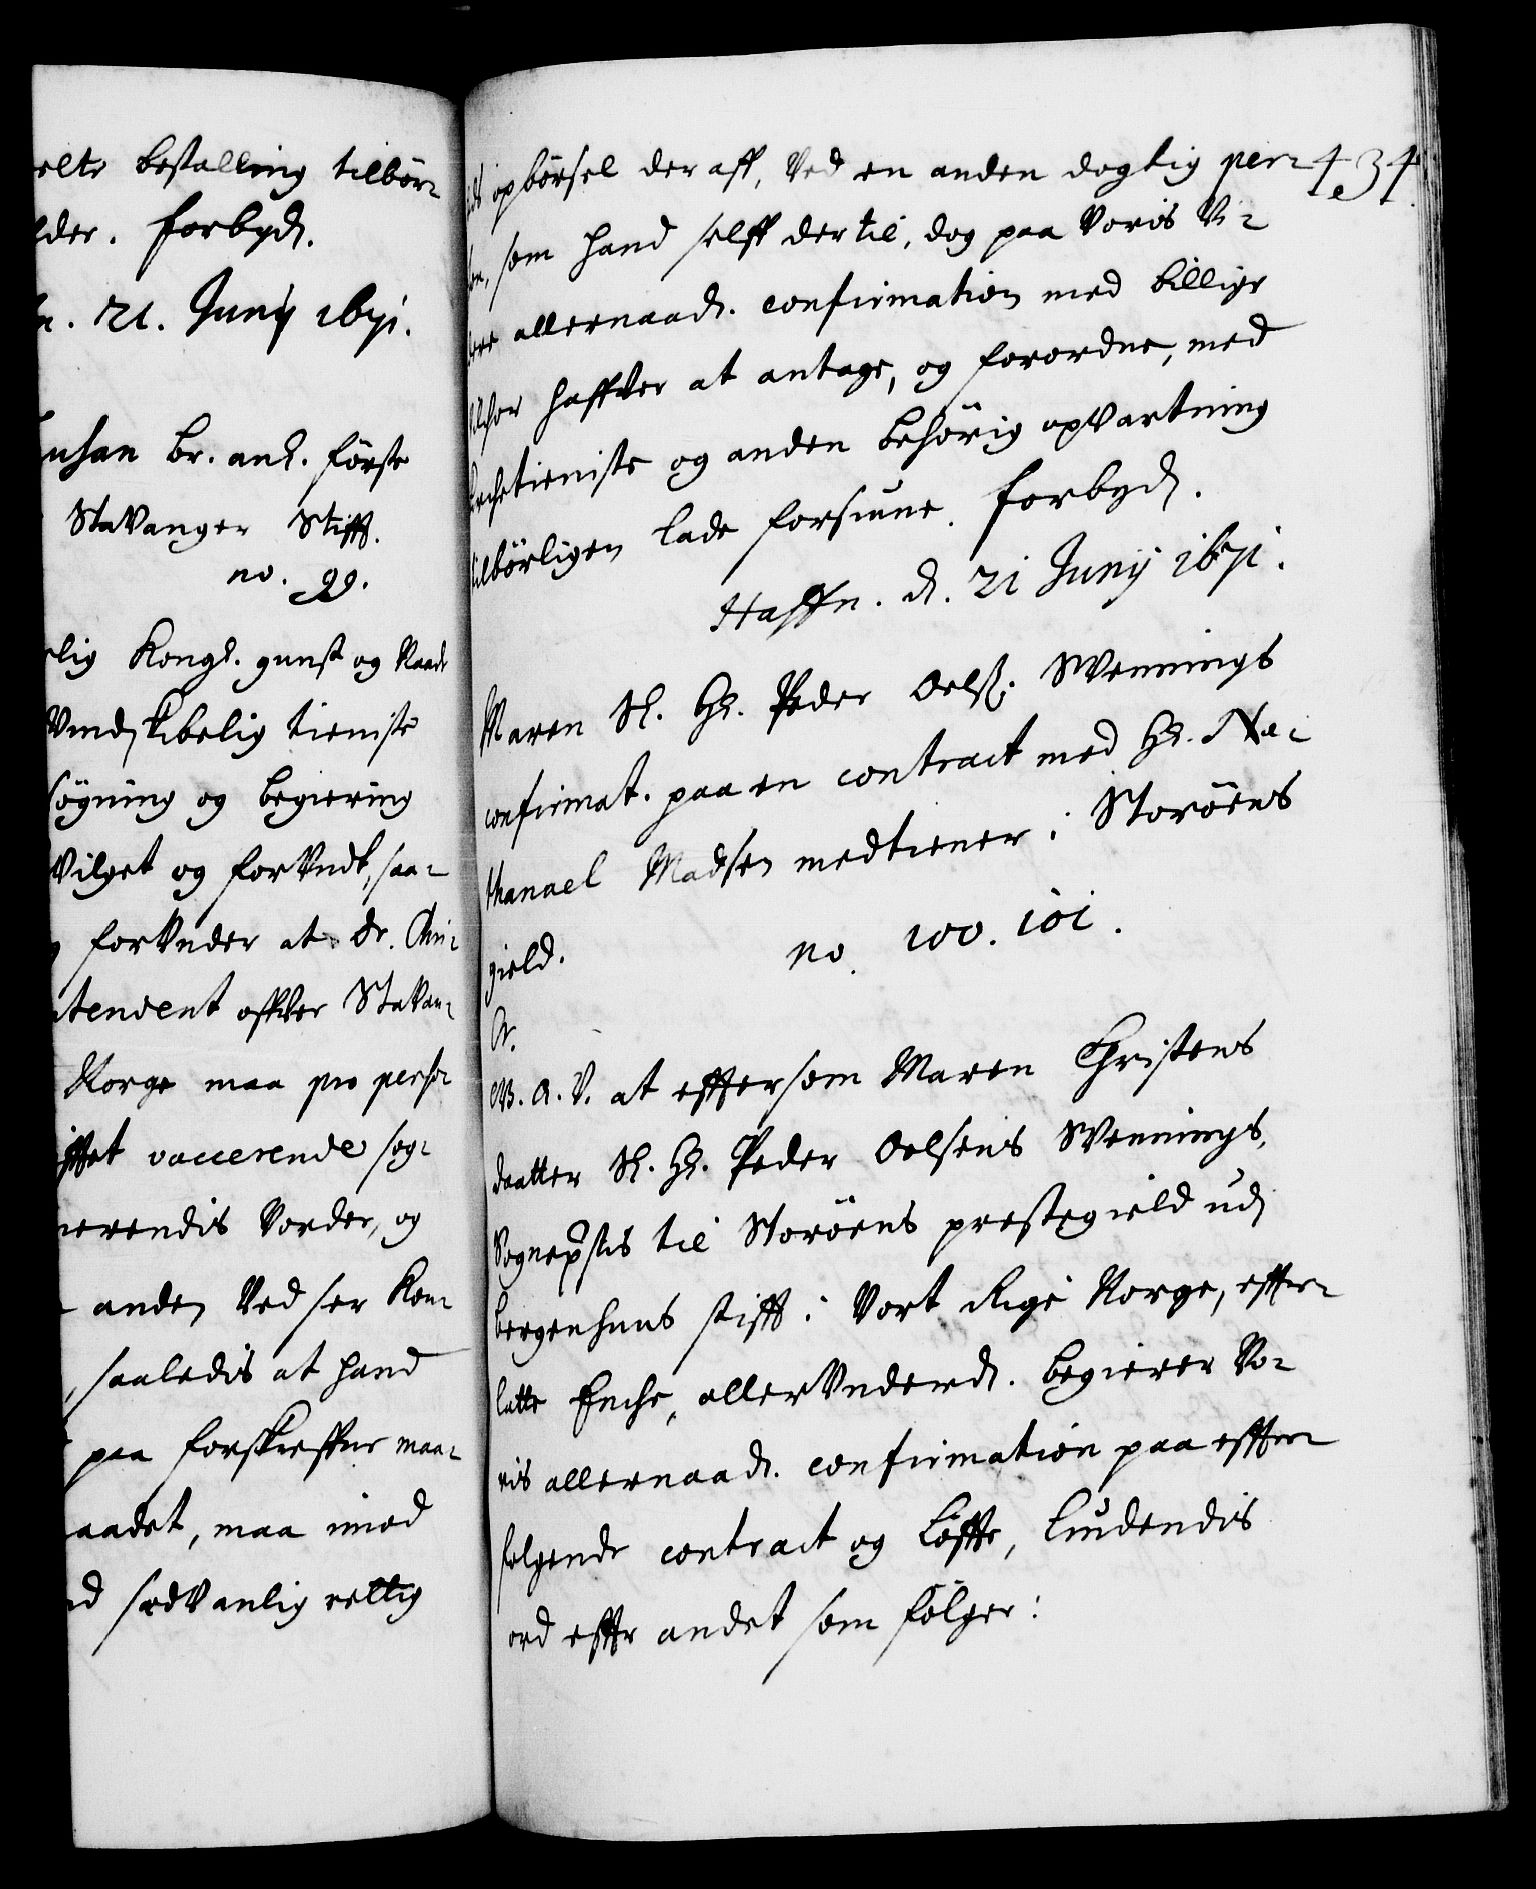 elte bestalling tilbör-
lder. forbydē.
n. 21. Junij 1671.
nhan Br. anl. förste
Stavanger Stifft.
no. 99.
lig Kongl. gunst og Naade
Vindskibelig tieniste
søgning og begiering
vilget og forVndt, saa-
forVnder at Dr. Chri-
ntendent offver Stavan-
Norge maa pro perso-
ifftet vaccerende sog-
nerendis Vorder, og
anden Ved ser Kom-
, saaledis at hand
paa forskreffne maa-
aadet, maa imod
d sædvanlig rettig
434.
ds opbörsel der aff, Ved en anden dogtig per-
son, som hand selff dertil, dog paa Voris Vi-
dere allernaadē. confirmation med billige
Vilchor haffver at antage, og forordne, med
Kirchetieniste og anden behörig opVartning
tilbörligen lade forsiune. forbydē.
Haffn. d. 21 Junij 1671.
Maren Sl. Hr. Peder Oelsß. Wennings
confirmat. paa en contract med Hr. Na-
thanael Madsen medtiener i Storöens
gield. no. 100. 101.
A.
W. A. V. at efftersom Maren Christens
daatter Sl. Hr. Peder Oelsens Wennings,
Sogneprestis til Storöens prestegield udj
bergenhuus stifft i Vort Rige Norge, effter-
latte Enche, allerVnderdē. begierer Vo-
ris allernaadē. confirmation paa effter-
folgende contract og Löffte, liudendis
ord effter andet som fölger: